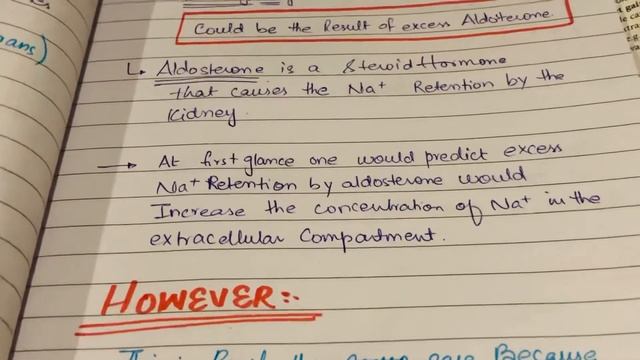 ans)
Could be the Result of excess Aldosterone.
L. Aldosterone is a Steroid Hormone
that causes the Na+ Retention by the
Kidney.
→ At first glance one would predict excess
Na+ Retention by aldosterone would
Increase the concentration of Na+ in the
extracellular Compartment.
HOWEVER:-
Because